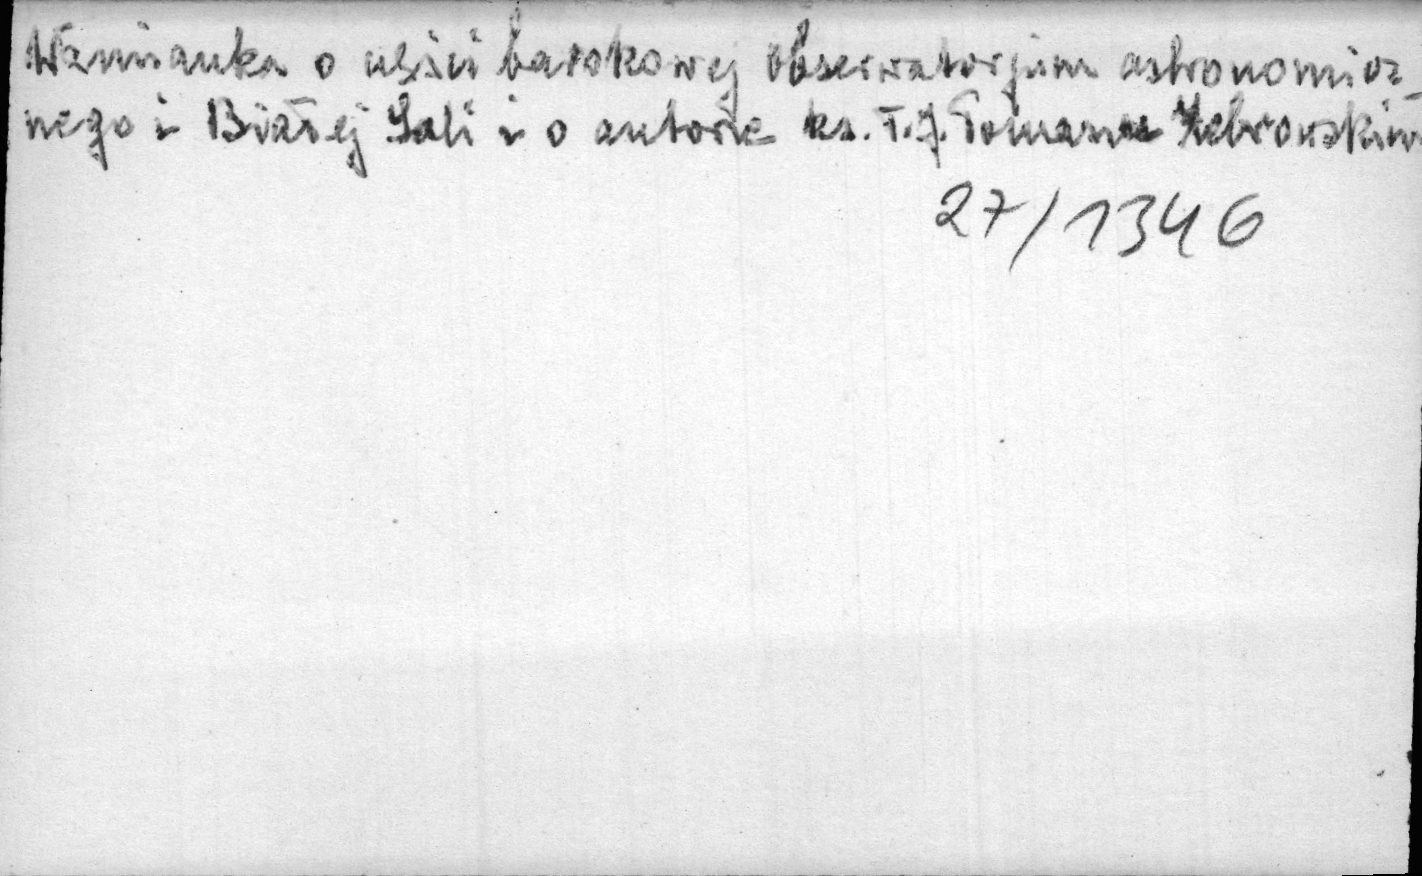 Wzmianka o części barokowej obserwatorjum astronomicz-
nego i Białej Sali i o autorze ks. T. J. Tomaszu Żebrowskim
27/1346